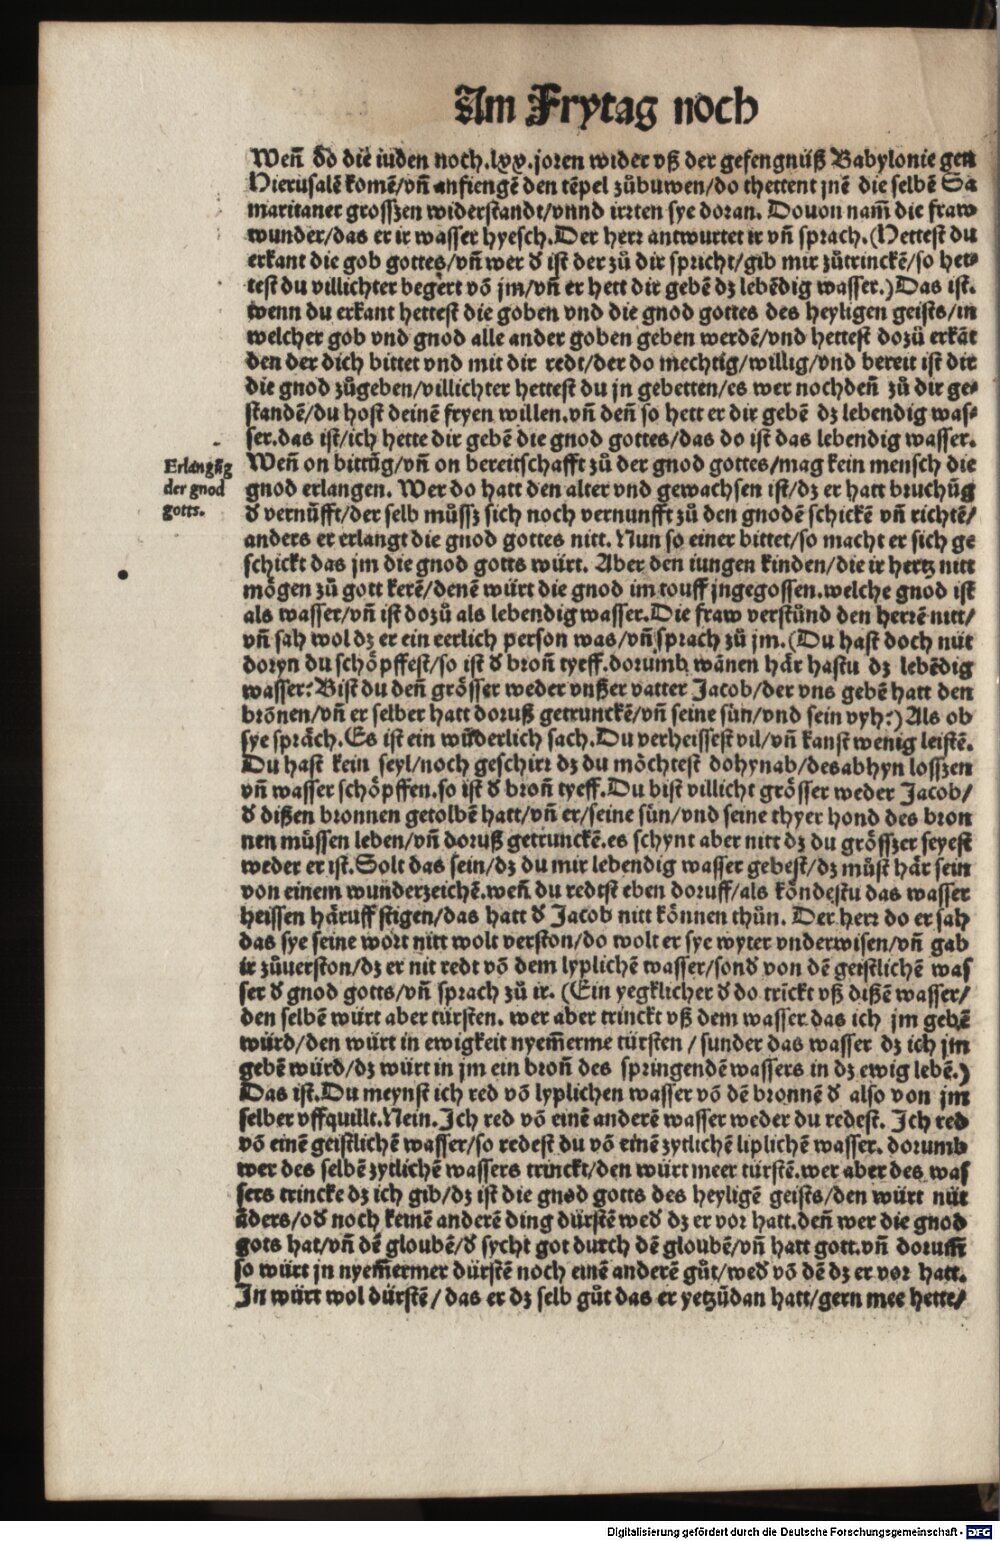 Am Frytag noch
Weñ do die iuden noch.lxx.joren wider vß der gefengnüß Babylonie gen
Hierusalē komē/vñ anfiengē den tēpel zůbuwen/do thettent jnē die selbē Sa
maritaner grosszen widerstandt/vnnd irrten sye doran. Douon nam̃ die fraw
wunder/das er ir wasser hyesch.Der herr antwurtet ir vñ sprach.(Hettest du
erkant die gob gottes/vñ wer d ist der zů dir spricht/gib mir zůtrinckē/so het⸗
test du villichter begert vō jm/vñ er hett dir gebē dz lebēdig wasser.)Das ist.
wenn du erkant hettest die goben vnd die gnod gottes des heyligen geists/in
welcher gob vnd gnod alle ander goben geben werdē/vnd hettest dozů erkāt
den der dich bittet vnd mit dir redt/der do mechtig/willig/vnd bereit ist dir
die gnod zůgeben/villichter hettest du jn gebetten/es wer nochdeñ zů dir ge⸗
standē/du host deinē fryen willen.vñ deñ so hett er dir gebē dz lebendig was⸗
ser.das ist/ich hette dir gebē die gnod gottes/das do ist das lebendig wasser.
Erlangūg
der gnod
gotts.
Weñ on bittūg/vñ on bereitschafft zů der gnod gottes/mag kein mensch die
gnod erlangen. Wer do hatt den alter vnd gewachsen ist/dz er hatt bruchūg
d vernūfft/der selb můssz sich noch vernunfft zů den gnodē schickē vñ richtē/
anders er erlangt die gnod gottes nitt. Nun so einer bittet/so macht er sich ge
schickt das jm die gnod gotts würt. Aber den iungen kinden/die ir hertz nitt
mögen zů gott kerē/denē würt die gnod im touff jngegossen.welche gnod ist
als wasser/vñ ist dozů als lebendig wasser.Die fraw verstůnd den herrē nitt/
vñ sah wol dz er ein eerlich person was/vñ sprach zů jm.(Du hast doch nüt
doryn du schöpffest/so ist d broñ tyeff.dorumb wānen här hastu dz lebēdig
wasser?Bist du deñ grösser weder vnßer vatter Jacob/der vns gebē hatt den
brōnen/vñ er selber hatt doruß getrunckē/vñ seine sün/vnd sein vyh?)Als ob
sye spräch.Es ist ein wūderlich sach.Du verheissest vil/vñ kanst wenig leistē.
Du hast kein seyl/noch geschirr dz du möchtest dohynab/desabhyn losszen
vñ wasser schöpffen.so ist d broñ tyeff.Du bist villicht grösser weder Jacob/
d dißen bronnen getolbē hatt/vñ er/seine sün/vnd seine thyer hond des bron
nen müssen leben/vñ doruß getrunckē.es schynt aber nitt dz du grösszer seyest
weder er ist.Solt das sein/dz du mir lebendig wasser gebest/dz müst här sein
von einem wunderzeichē.weñ du redtst eben doruff/als köndestu das wasser
heissen häruff stigen/das hatt d Jacob nitt können thůn. Der herr do er sah
das sye seine wort nitt wolt verston/do wolt er sye wyter vnderwisen/vñ gab
ir zůuerston/dz er nit redt vō dem lyplichē wasser/sond von dē geistlichē was
ser d gnod gotts/vñ sprach zů ir. (Ein yegklicher d do trīckt vß dißē wasser/
den selbē würt aber türsten. wer aber trinckt vß dem wasser das ich jm gebē
würd/den würt in ewigkeit nyem̃erme türsten / sunder das wasser dz ich jm
gebē würd/dz würt in jm ein broñ des springendē wassers in dz ewig lebē.)
Das ist.Du meynst ich red vō lyplichen wasser vō dē bronnē d also von jm
selber vffquillt.Nein.Ich red vō einē anderē wasser weder du redest. Ich red
vō einē geistlichē wasser/so redest du vō einē zytlichē liplichē wasser. dorumb
wer des selbē zytlichē wassers trinckt/den würt meer türstē.wer aber des was
sers trincke dz ich gib/dz ist die gnod gotts des heyligē geists/den würt nüt
āders/od noch keinē anderē ding dürstē wed dz er vor hatt.deñ wer die gnod
gots hat/vñ dē gloubē/d sycht got durch dē gloubē/vñ hatt gott.vñ dorum̃
so würt jn nyem̃ermer dürstē noch einē anderē gůt/wed vō dē dz er vor hatt.
In würt wol dürstē / das er dz selb gůt das er yetzūdan hatt/gern mee hette/
Digitalisierung gefördert durch die Deutsche Forschungsgemeinschaft - DFG